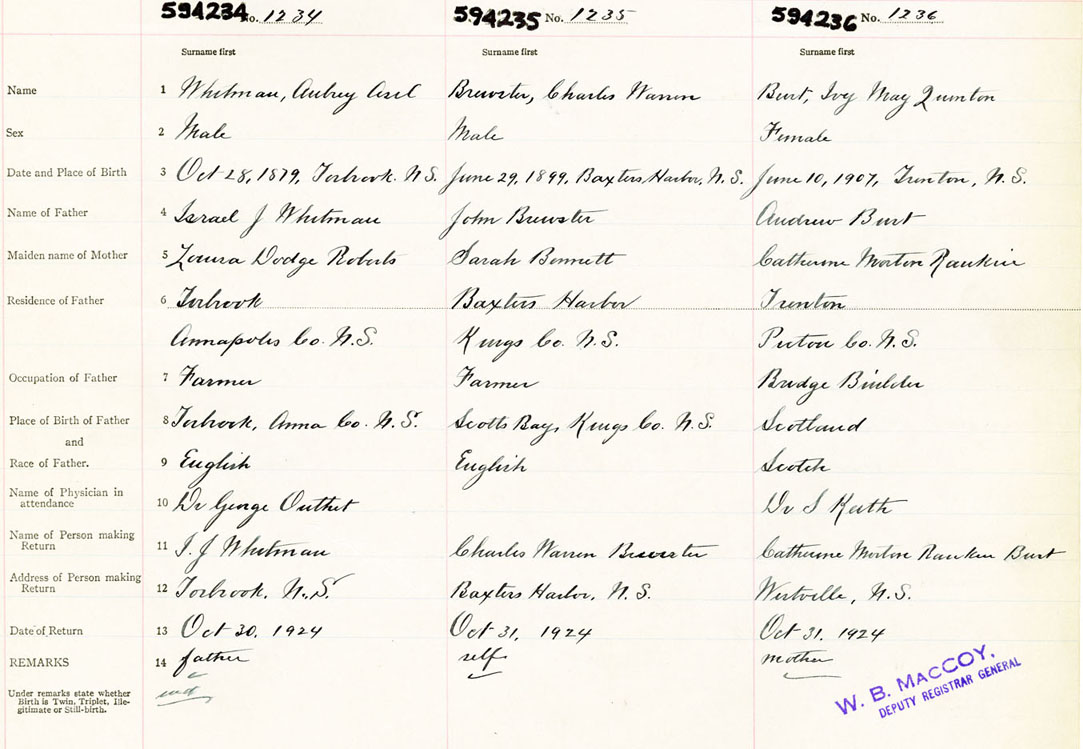 594234 No. 1234 594235 No. 1235 594236 No. 1236
Surname first Surname first Surname first
Name 1 Whitman, Aubrey Asel Brewster, Charles Warren Burt, Ivy May Quinton
Sex 2 Male Male Female
Date and Place of Birth 3 Oct 28, 1879, Torbrook. N.S. June 29, 1899, Baxters Harbor, N.S. June 10, 1907, Trenton, N.S.
Name of Father 4 Israel J Whitman John Brewster Andrew Burt
Maiden name of Mother 5 Louisa Dodge Roberts Sarah Bennett Catherine Morton Rankin
Residence of Father 6 Torbrook Baxters Harbor Trenton
Annapolis Co. N.S. Kings Co. N.S. Pictou Co. N.S.
Occupation of Father 7 Farmer Farmer Bridge Builder
Place of Birth of Father 8 Torbrook, Anna Co. N.S. Scotts Bay, Kings Co. N.S. Scotland
and
Race of Father. 9 English English Scotch
Name of Physician in
attendance 10 Dr George Outhet Dr S Keith
Name of Person making
Return 11 I. J Whitman Charles Warren Brewster Catherine Morton Rankin Burt
Address of Person making
Return 12 Torbrook, N.S. Baxters Harbor, N.S. Westville, N.S.
Date of Return 13 Oct 30, 1924 Oct 31, 1924 Oct 31, 1924
REMARKS 14 father self mother
Under remarks state whether
Birth is Twin, Triplet, Ille-
gitimate or Still-birth.
W. B. MACCOY,
DEPUTY REGISTRAR GENERAL